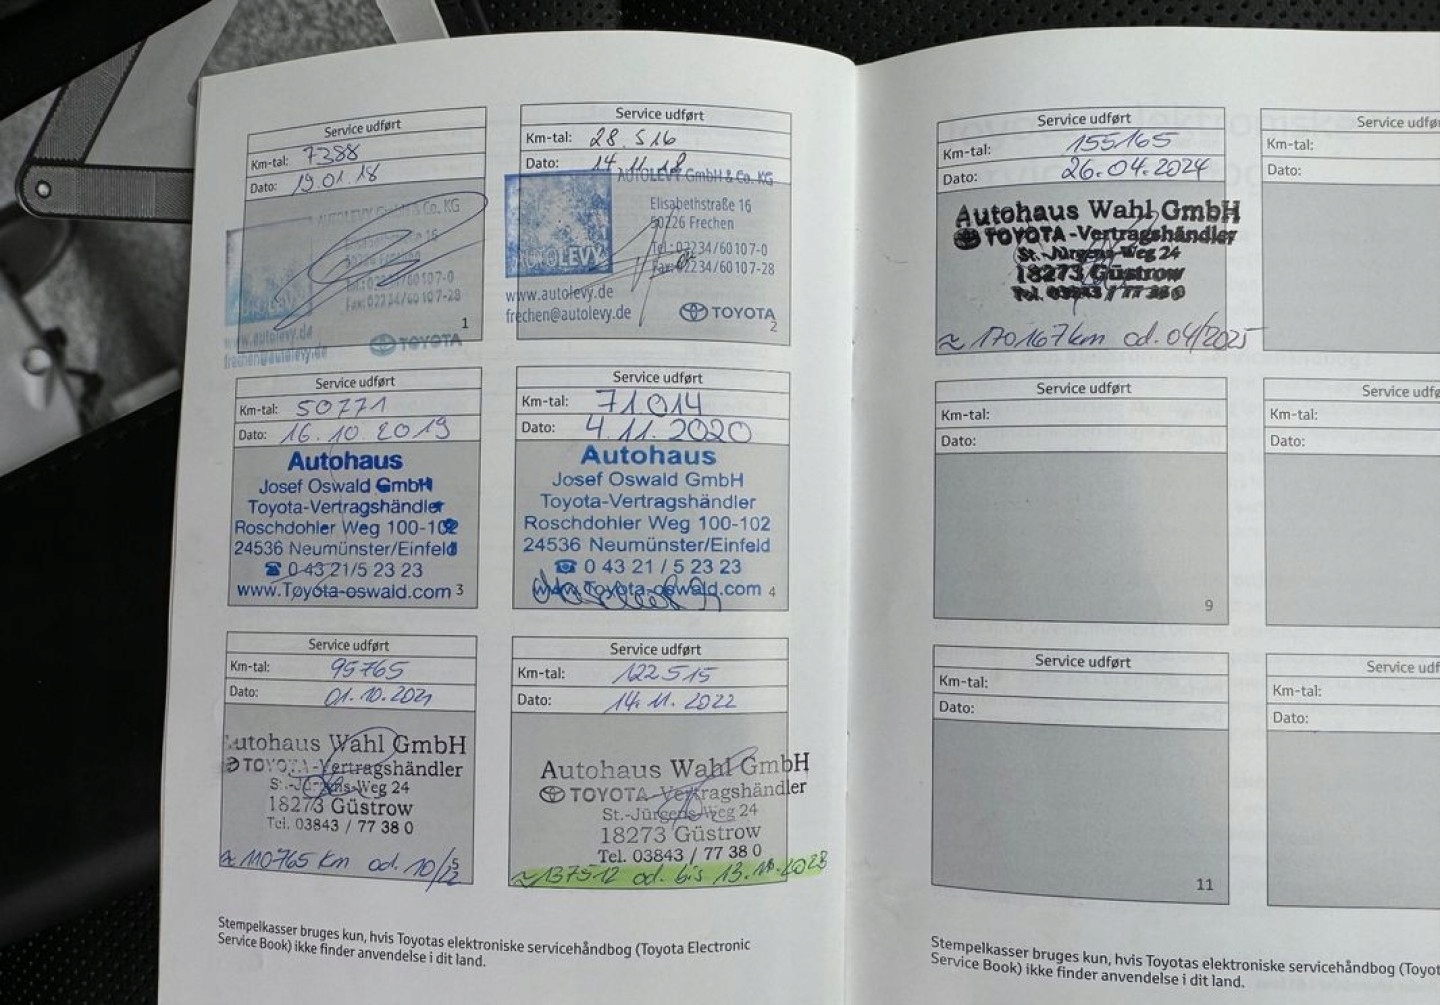 Service udført
Km-tal: 7388
Dato: 19.01.18
AUTOLEVY GmbH & Co. KG
Elisabethstraße 16
50226 Frechen
Tel.: 02234/60107-0
Fax: 02234/60107-28
www.autolevy.de
frechen@autolevy.de
TOYOTA
1
Service udført
Km-tal: 28.516
Dato: 14.11.18
AUTOLEVY GmbH & Co. KG
Elisabethstraße 16
50226 Frechen
Tel.: 02234/60107-0
Fax: 02234/60107-28
AUTOLEVY
www.autolevy.de
frechen@autolevy.de
TOYOTA
2
Service udført
Km-tal: 50771
Dato: 16.10.2019
Autohaus
Josef Oswald GmbH
Toyota-Vertragshändler
Roschdohler Weg 100-102
24536 Neumünster/Einfeld
☎ 0 43 21/5 23 23
www.Toyota-oswald.com 3
Service udført
Km-tal: 71014
Dato: 4.11.2020
Autohaus
Josef Oswald GmbH
Toyota-Vertragshändler
Roschdohler Weg 100-102
24536 Neumünster/Einfeld
☎ 0 43 21 / 5 23 23
www.Toyota-oswald.com 4
Service udført
Km-tal: 95765
Dato: 01.10.2021
Autohaus Wahl GmbH
TOYOTA-Vertragshändler
St.-Jürgens-Weg 24
18273 Güstrow
Tel. 03843 / 77 38 0
≈ 110765 km od. 10/22
Service udført
Km-tal: 122515
Dato: 14.11.2022
Autohaus Wahl GmbH
TOYOTA-Vertragshändler
St.-Jürgens-Weg 24
18273 Güstrow
Tel. 03843 / 77 38 0
≈ 137512 od. bis 13.11.2023
Stempelkasser bruges kun, hvis Toyotas elektroniske servicehåndbog (Toyota Electronic
Service Book) ikke finder anvendelse i dit land.
Service udført
Km-tal: 155165
Dato: 26.04.2024
Autohaus Wahl GmbH
TOYOTA-Vertragshändler
St.-Jürgens-Weg 24
18273 Güstrow
Tel. 03843 / 77 38 0
≈ 170167 km od. 04/2025
Service udfø
Km-tal:
Dato:
Service udført
Km-tal:
Dato:
9
Service udfø
Km-tal:
Dato:
Service udført
Km-tal:
Dato:
11
Service udf
Km-tal:
Dato:
Stempelkasser bruges kun, hvis Toyotas elektroniske servicehåndbog (Toyot
Service Book) ikke finder anvendelse i dit land.